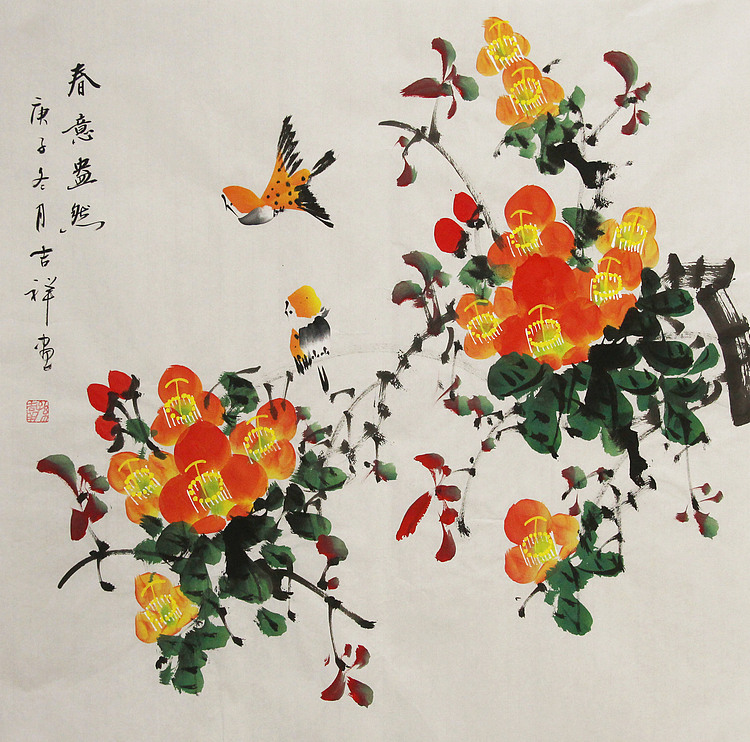 春意盎然
庚子冬月吉祥画